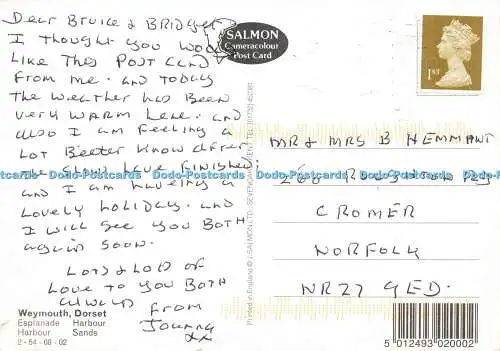 Dear Bruce & Bridget
I thought you would
like this Post Card
from me. and today
the weather has been
very warm here. and
also I am feeling a
lot Beeter know after
and I am haveing a
lovely holiday. and
I will see you Both
again soon.
Lots & lots of
love to you Both
always from
Johnny
xx
Weymouth, Dorset
Esplanade Harbour
Harbour Sands
2 - 54 - 08 - 02
SALMON
Cameracolour
Post Card
Printed in England © J. SALMON LTD., SEVENOAKS, KENT. TEL: (01732) 452381
1ST
Mr & Mrs B Hemmant
Cromer
Norfolk
NR27 9ED.
5 012493 020002
Dodo-Postcards Dodo-Postcards Dodo-Postcards Dodo-Postcards